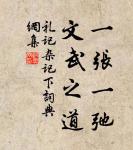 一張一弛
文武之道
礼記杂記下詞典
網集